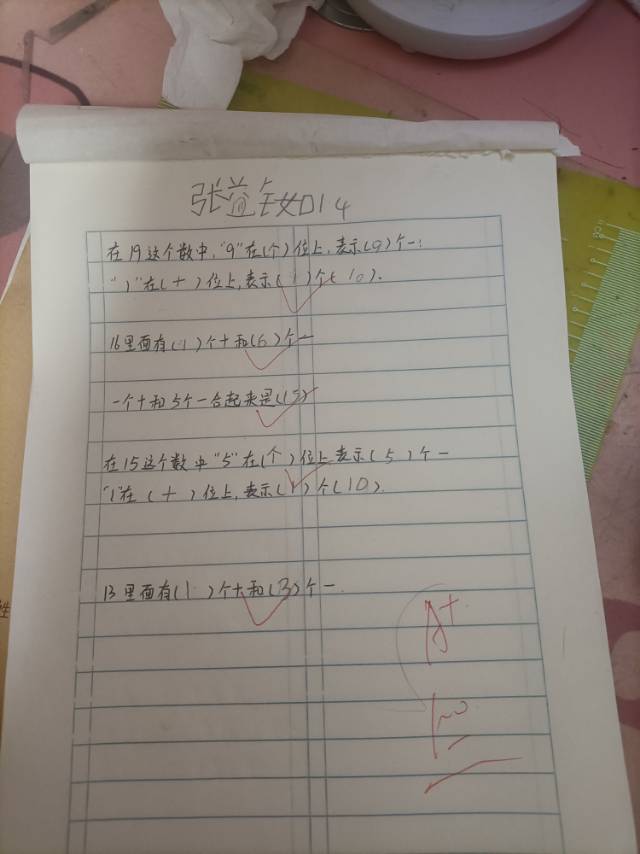 张益铉014
在19这个数中,"9"在(个)位上,表示(9)个一;
"1"在(十)位上,表示(1)个(10).
16里面有(1)个十和(6)个一
一个十和5个一合起来是(15)
在15这个数中"5"在(个)位上表示(5)个一
"1"在(十)位上,表示(1)个(10).
13里面有(1)个十和(3)个一.
A+
100